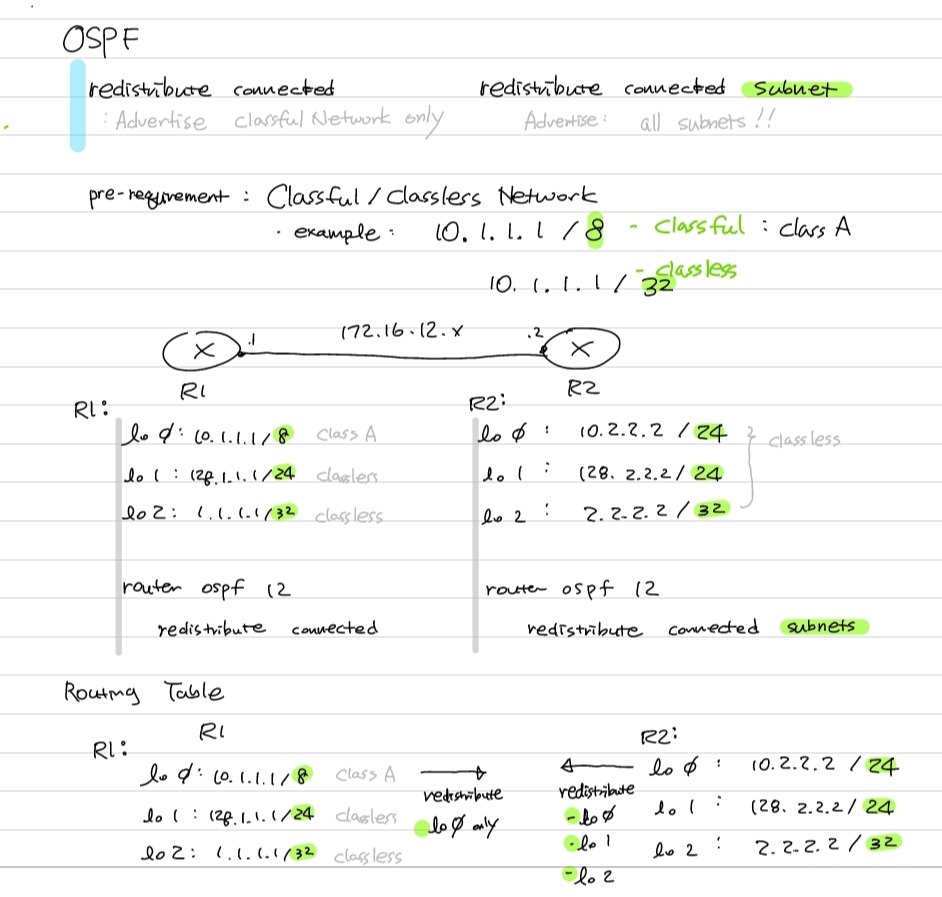 OSPF
redistribute connected
: Advertise classful Network only
redistribute connected subnet
Advertise: all subnets !!
pre-requirement : Classful / Classless Network
· example : 10. 1. 1. 1 / 8 - classful : class A
10. 1. 1. 1 / 32 - classless
.1 172.16.12.x .2
R1 R2
R1:
lo ∅ : 10. 1.1.1 / 8 class A
lo 1 : 128.1.1.1/24 classless
lo 2 : 1.1.1.1/32 classless
router ospf 12
redistribute connected
R2:
lo ∅ : 10.2.2.2 / 24
lo 1 : 128. 2.2.2 / 24
lo 2 : 2.2.2.2 / 32
classless
router ospf 12
redistribute connected subnets
Routing Table
R1
R1:
lo ∅ : 10. 1.1.1 / 8 class A
lo 1 : 128.1.1.1/24 classless
lo 2 : 1.1.1.1/32 classless
redistribute
- lo ∅ only
R2:
redistribute
- lo ∅
- lo 1
- lo 2
lo ∅ : 10.2.2.2 / 24
lo 1 : 128. 2.2.2 / 24
lo 2 : 2.2.2.2 / 32